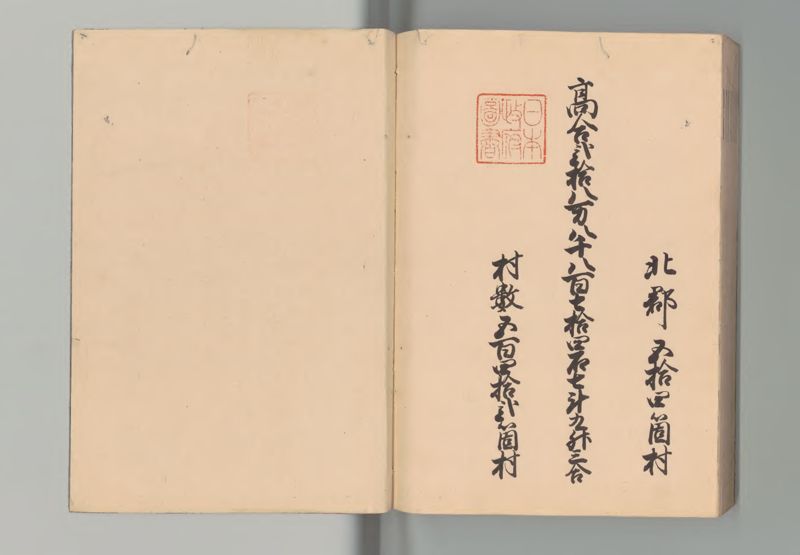 北郡 五拾四箇村
高合弐拾八万八千八百七拾四石七斗九升三合
村数五百四拾弐箇村
日本
政府
圖書